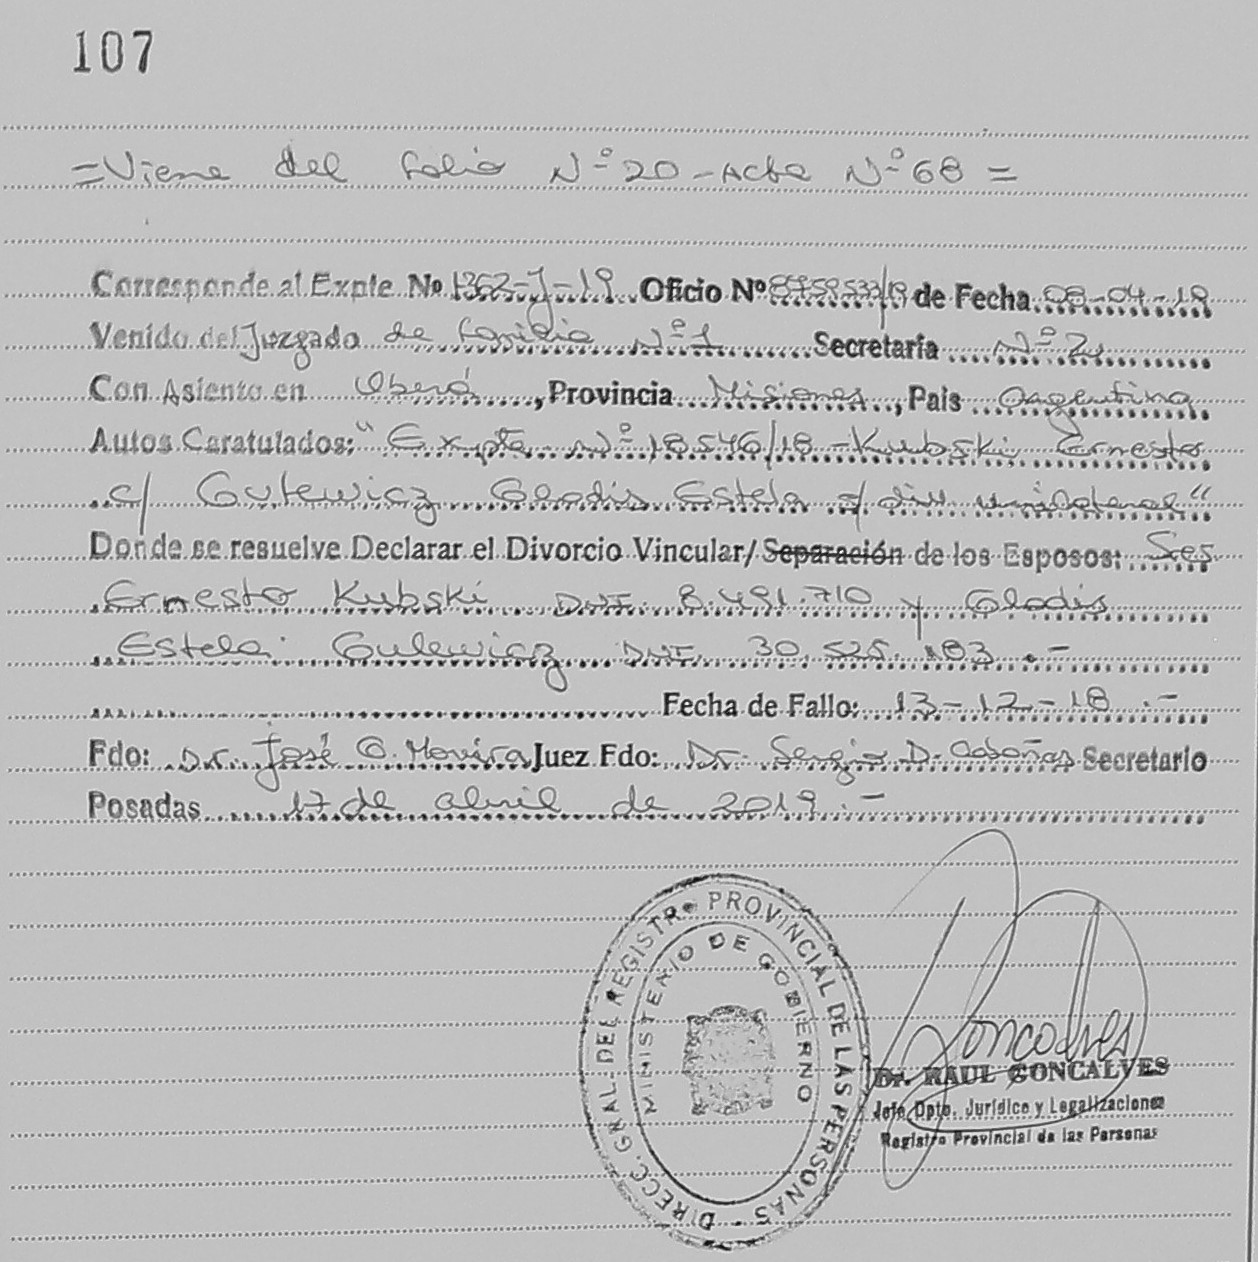 107
=Viene del folio Nº 20 - Acta Nº 68 =
Corresponde al Expte Nº 1362-J-19 Oficio Nº 8459533/19 de Fecha 08-04-19
Venido del Juzgado de Familia Nº 1 Secretaría Nº 2
Con Asiento en Oberá, Provincia Misiones, Pais Argentina
Autos Caratulados: "Expte Nº 18546/18 - Kubski Ernesto
c/ Gulewicz Gladis Estela s/ div. unilateral"
Donde se resuelve Declarar el Divorcio Vincular/ Separación de los Esposos: Sres
Ernesto Kubski DNI. 8.491.710 y Gladis
Estela Gulewicz DNI. 30.525.183 .-
Fecha de Fallo: 13-12-18 .-
Fdo: Dr. José G. Moreira Juez Fdo: Dr. Sergio D. Cabañas Secretario
Posadas 17 de abril de 2019.-
DIRECC. GRAL. DEL REGISTRO PROVINCIAL DE LAS PERSONAS -
MINISTERIO DE GOBIERNO
Goncalves
Dr. RAUL GONCALVES
Jefe Dpto. Jurídico y Legalizaciones
Registro Provincial de las Personas